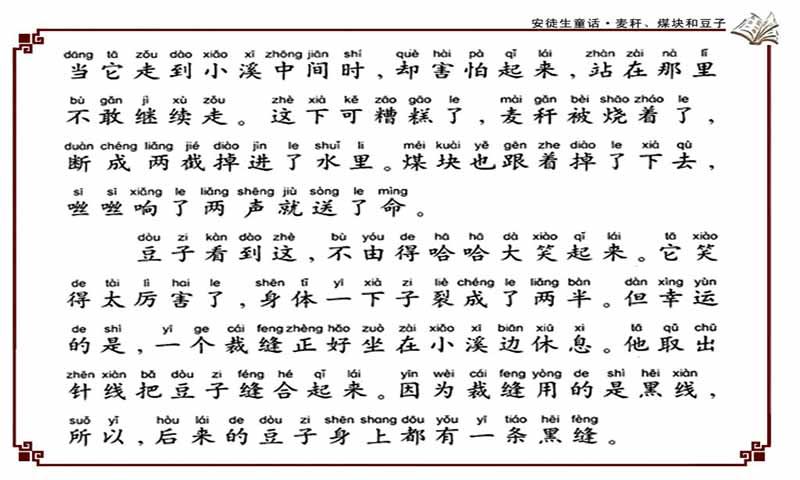 安徒生童话·麦秆、煤块和豆子
dāng tā zǒu dào xiǎo xī zhōng jiān shí què hài pà qǐ lái zhàn zài nà lǐ
当它走到小溪中间时，却害怕起来，站在那里
bù gǎn jì xù zǒu zhè xià kě zāo gāo le mài gǎn bèi shāo zháo le
不敢继续走。这下可糟糕了，麦秆被烧着了，
duàn chéng liǎng jié diào jìn le shuǐ li méi kuài yě gēn zhe diào le xià qù
断成两截掉进了水里。煤块也跟着掉了下去，
sī sī xiǎng le liǎng shēng jiù sòng le mìng
咝咝响了两声就送了命。
dòu zi kàn dào zhè bù yóu de hā hā dà xiào qǐ lái tā xiào
豆子看到这，不由得哈哈大笑起来。它笑
de tài lì hai le shēn tǐ yī xià zi liè chéng le liǎng bàn dàn xìng yùn
得太厉害了，身体一下子裂成了两半。但幸运
de shì yī ge cái feng zhèng hǎo zuò zài xiǎo xī biān xiū xi tā qǔ chū
的是，一个裁缝正好坐在小溪边休息。他取出
zhēn xiàn bǎ dòu zi féng hé qǐ lái yīn wèi cái feng yòng de shì hēi xiàn
针线把豆子缝合起来。因为裁缝用的是黑线，
suǒ yǐ hòu lái de dòu zi shēn shang dōu yǒu yī tiáo hēi fèng
所以，后来的豆子身上都有一条黑缝。